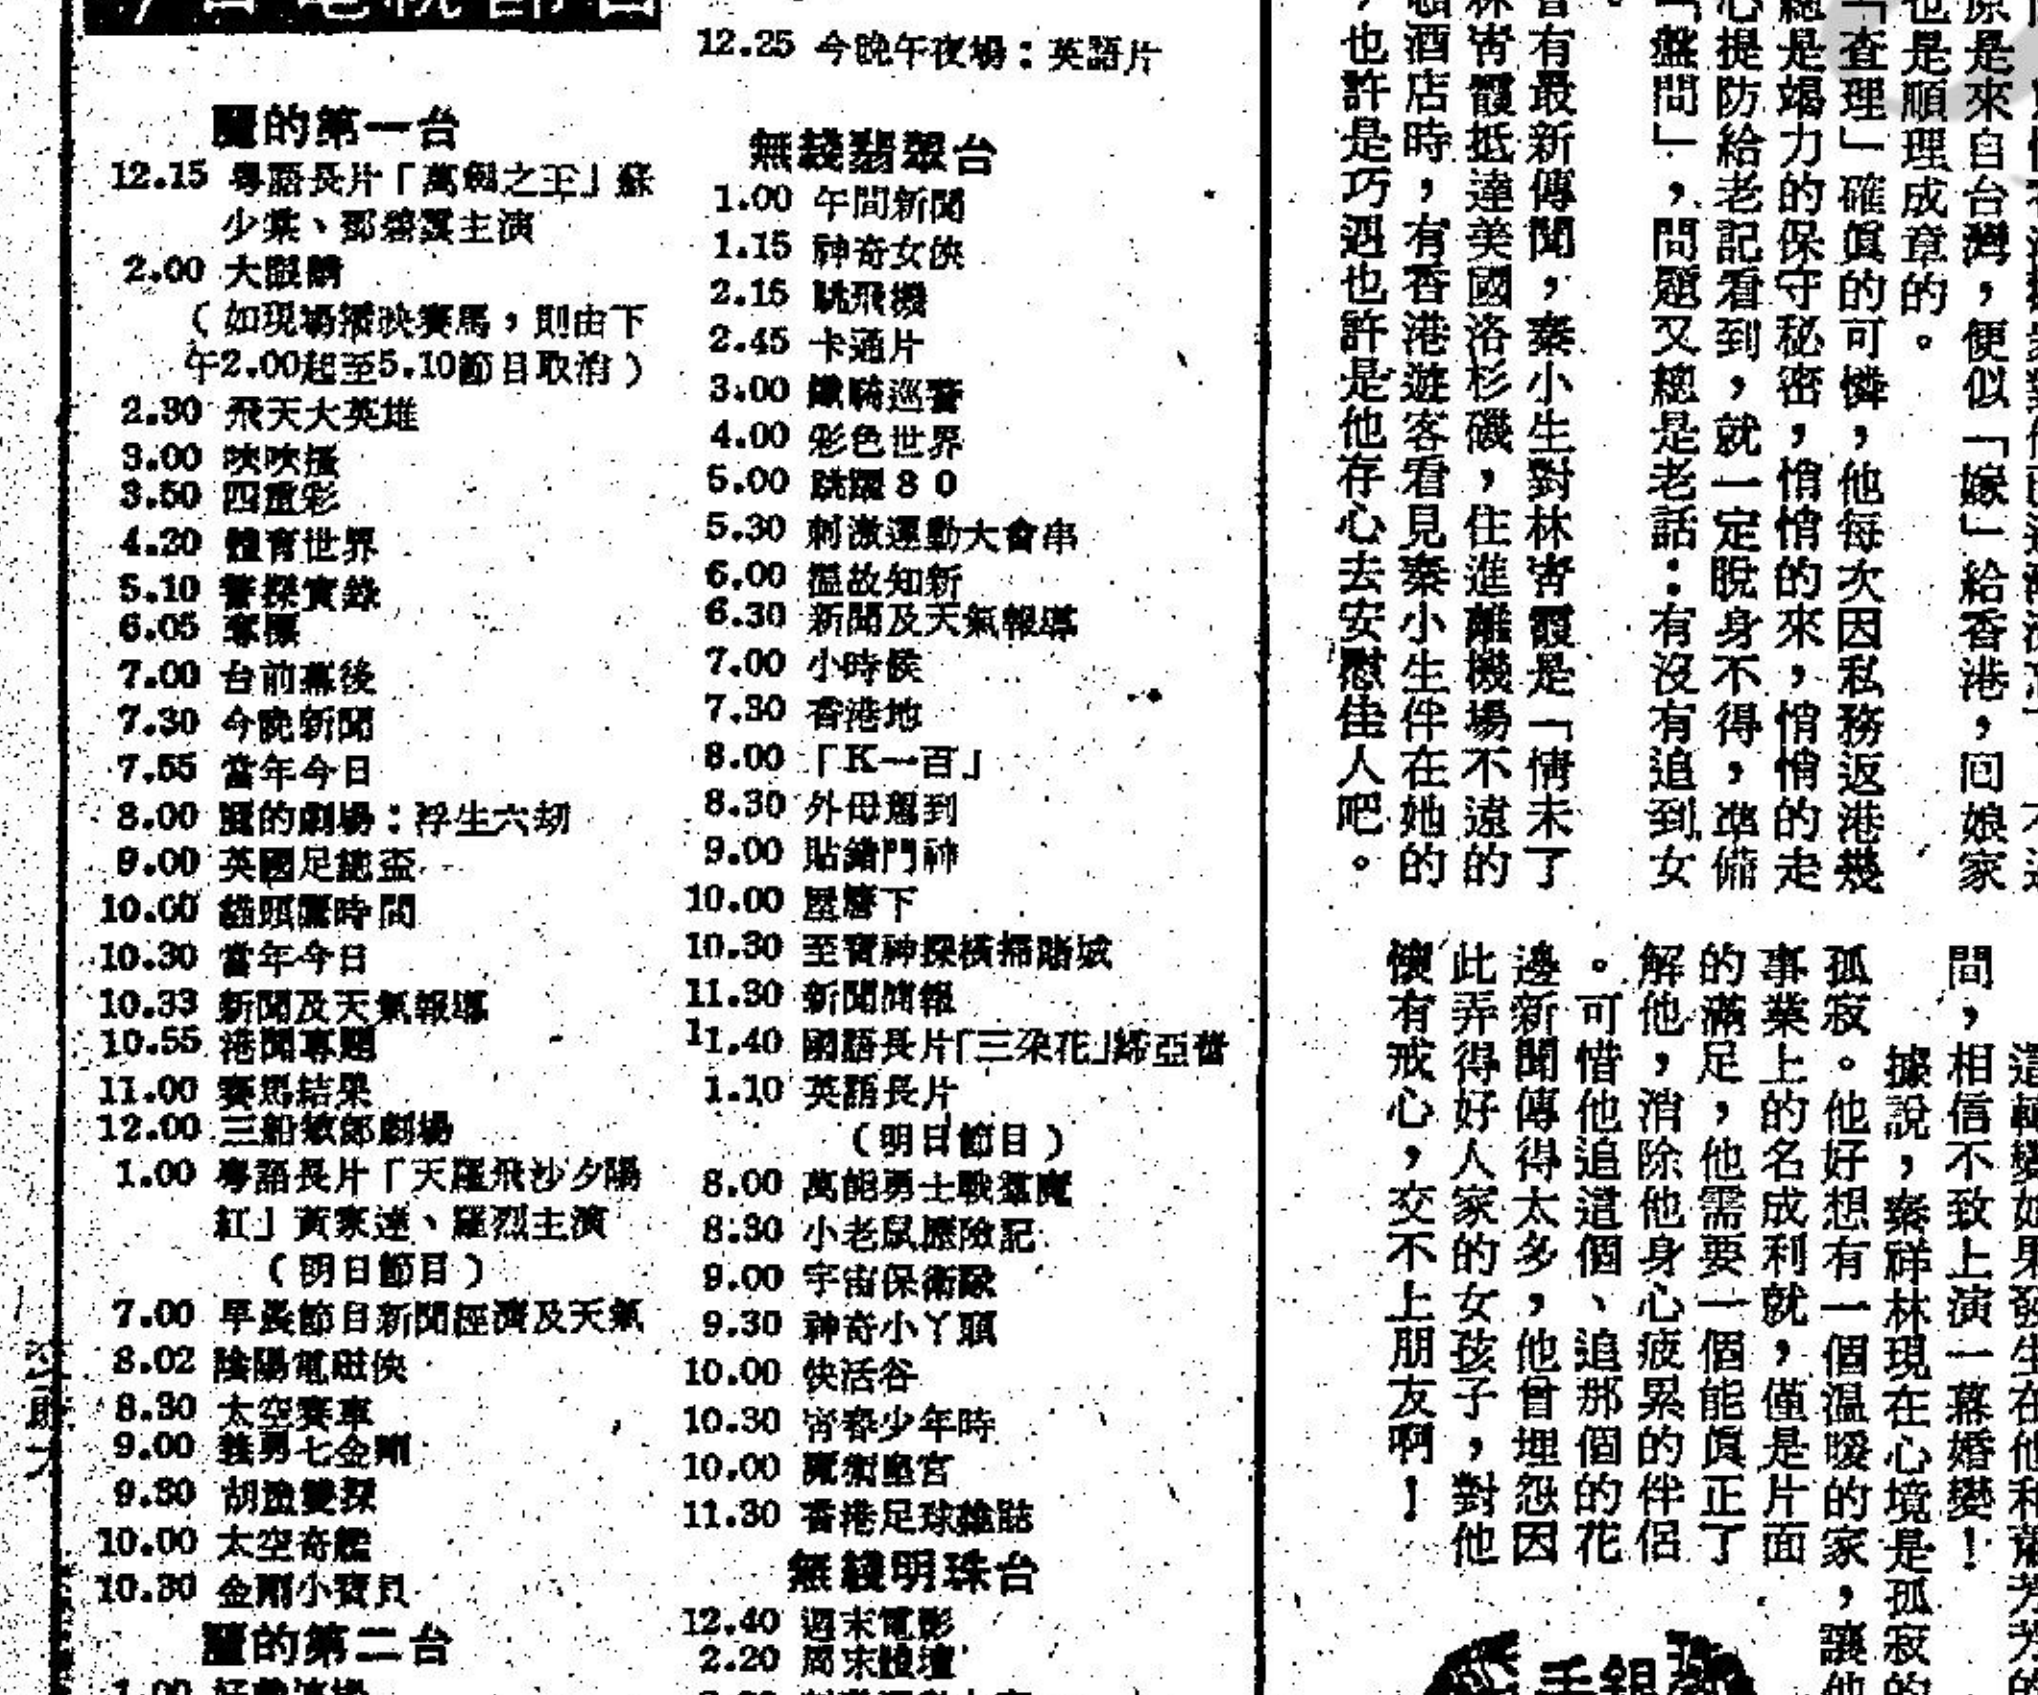 12.25 今晚午夜場：英語片
麗的第一台
12.15 粵語長片「萬惡之王」蘇
少棠、鄧碧雲主演
2.00 大眼睛
（如現場播映賽馬，則由下
午2.00起至5.10節目取消）
2.30 飛天大英雄
3.00 吹吹搔
3.50 四重彩
4.20 體育世界
5.10 警探實錄
6.05 奪標
7.00 台前幕後
7.30 今晚新聞
7.55 當年今日
8.00 麗的劇場：浮生六劫
9.00 英國足總盃
10.00 貓頭鷹時間
10.30 當年今日
10.33 新聞及天氣報導
10.55 港聞專題
11.00 賽馬結果
12.00 三船敏郎劇場
1.00 粵語長片「天羅飛沙夕陽
紅」黃家達、羅烈主演
（明日節目）
7.00 早晨節目新聞經濟及天氣
8.02 陰陽電磁俠
8.30 太空賽車
9.00 義勇七金剛
9.30 胡塗雙探
10.00 太空奇艦
10.30 金剛小寶貝
麗的第二台
無綫翡翠台
1.00 午間新聞
1.15 神奇女俠
2.15 跳飛機
2.45 卡通片
3.00 鐵騎巡警
4.00 彩色世界
5.00 跳躍８０
5.30 刺激運動大會串
6.00 溫故知新
6.30 新聞及天氣報導
7.00 小時候
7.30 香港地
8.00 「K一百」
8.30 外母駕到
9.00 貼錯門神
10.00 屋簷下
10.30 至寶神探橫掃賭城
11.30 新聞簡報
11.40 國語長片「三朶花」締亞蕾
1.10 英語長片
（明日節目）
8.00 萬能勇士戰羣魔
8.30 小老鼠歷險記
9.00 宇宙保衛隊
9.30 神奇小丫頭
10.00 快活谷
10.30 青春少年時
10.00 魔術皇宮
11.30 香港足球雜誌
無綫明珠台
12.40 週末電影
2.20 周末體壇
原是來自台灣，便似「嫁」給香港，回娘家
也是順理成章的。
「查理」確眞的可憐，他每次因私務返港幾
總是竭力的保守秘密，悄悄的來，悄悄的走
心提防給老記看到，就一定脫身不得，準備
「盤問」，問題又總是老話：有沒有追到女
。
有最新傳聞，秦小生對林靑霞是「情未了
林靑霞抵達美國洛杉磯，住進離機場不遠的
酒店時，有香港遊客看見秦小生伴在她的
，也許是巧遇也許是他存心去安慰佳人吧。
間，相信不致上演一幕婚變！
據說，秦祥林現在心境是孤寂的
孤寂。他好想有一個溫暖的家，讓他
事業上的名成利就，僅是片面
的滿足，他需要一個能眞正了
解他，消除他身心疲累的伴侶
。可惜他追這個、追那個的花
邊新聞傳得太多，他曾埋怨因
此弄得好人家的女孩子，對他
懷有戒心，交不上朋友啊！